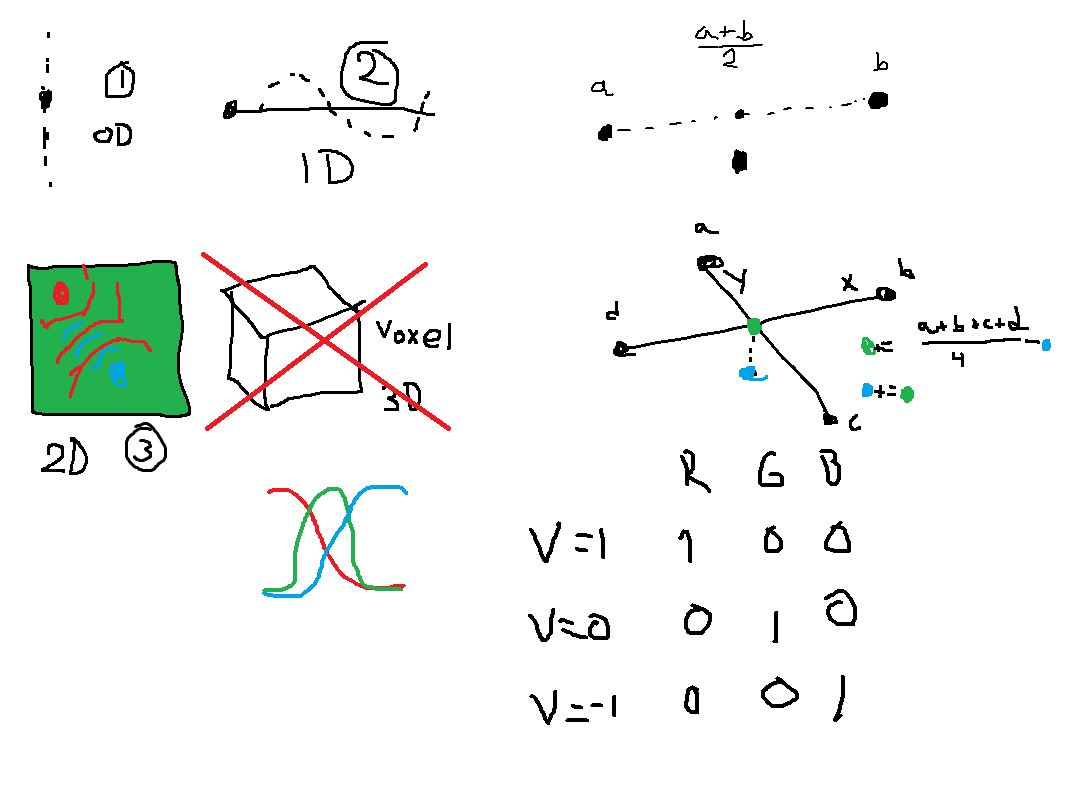 1
0D
2
1D
a+b
2
a
b
voxel
3D
2D
3
a
y
x
b
d
c
+=
a+b+c+d
4
-
+=
R G B
V=1 1 0 0
V=0 0 1 0
V=-1 0 0 1